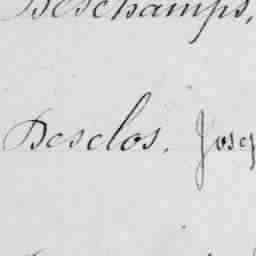 Deschamps,
Desclos. Josep